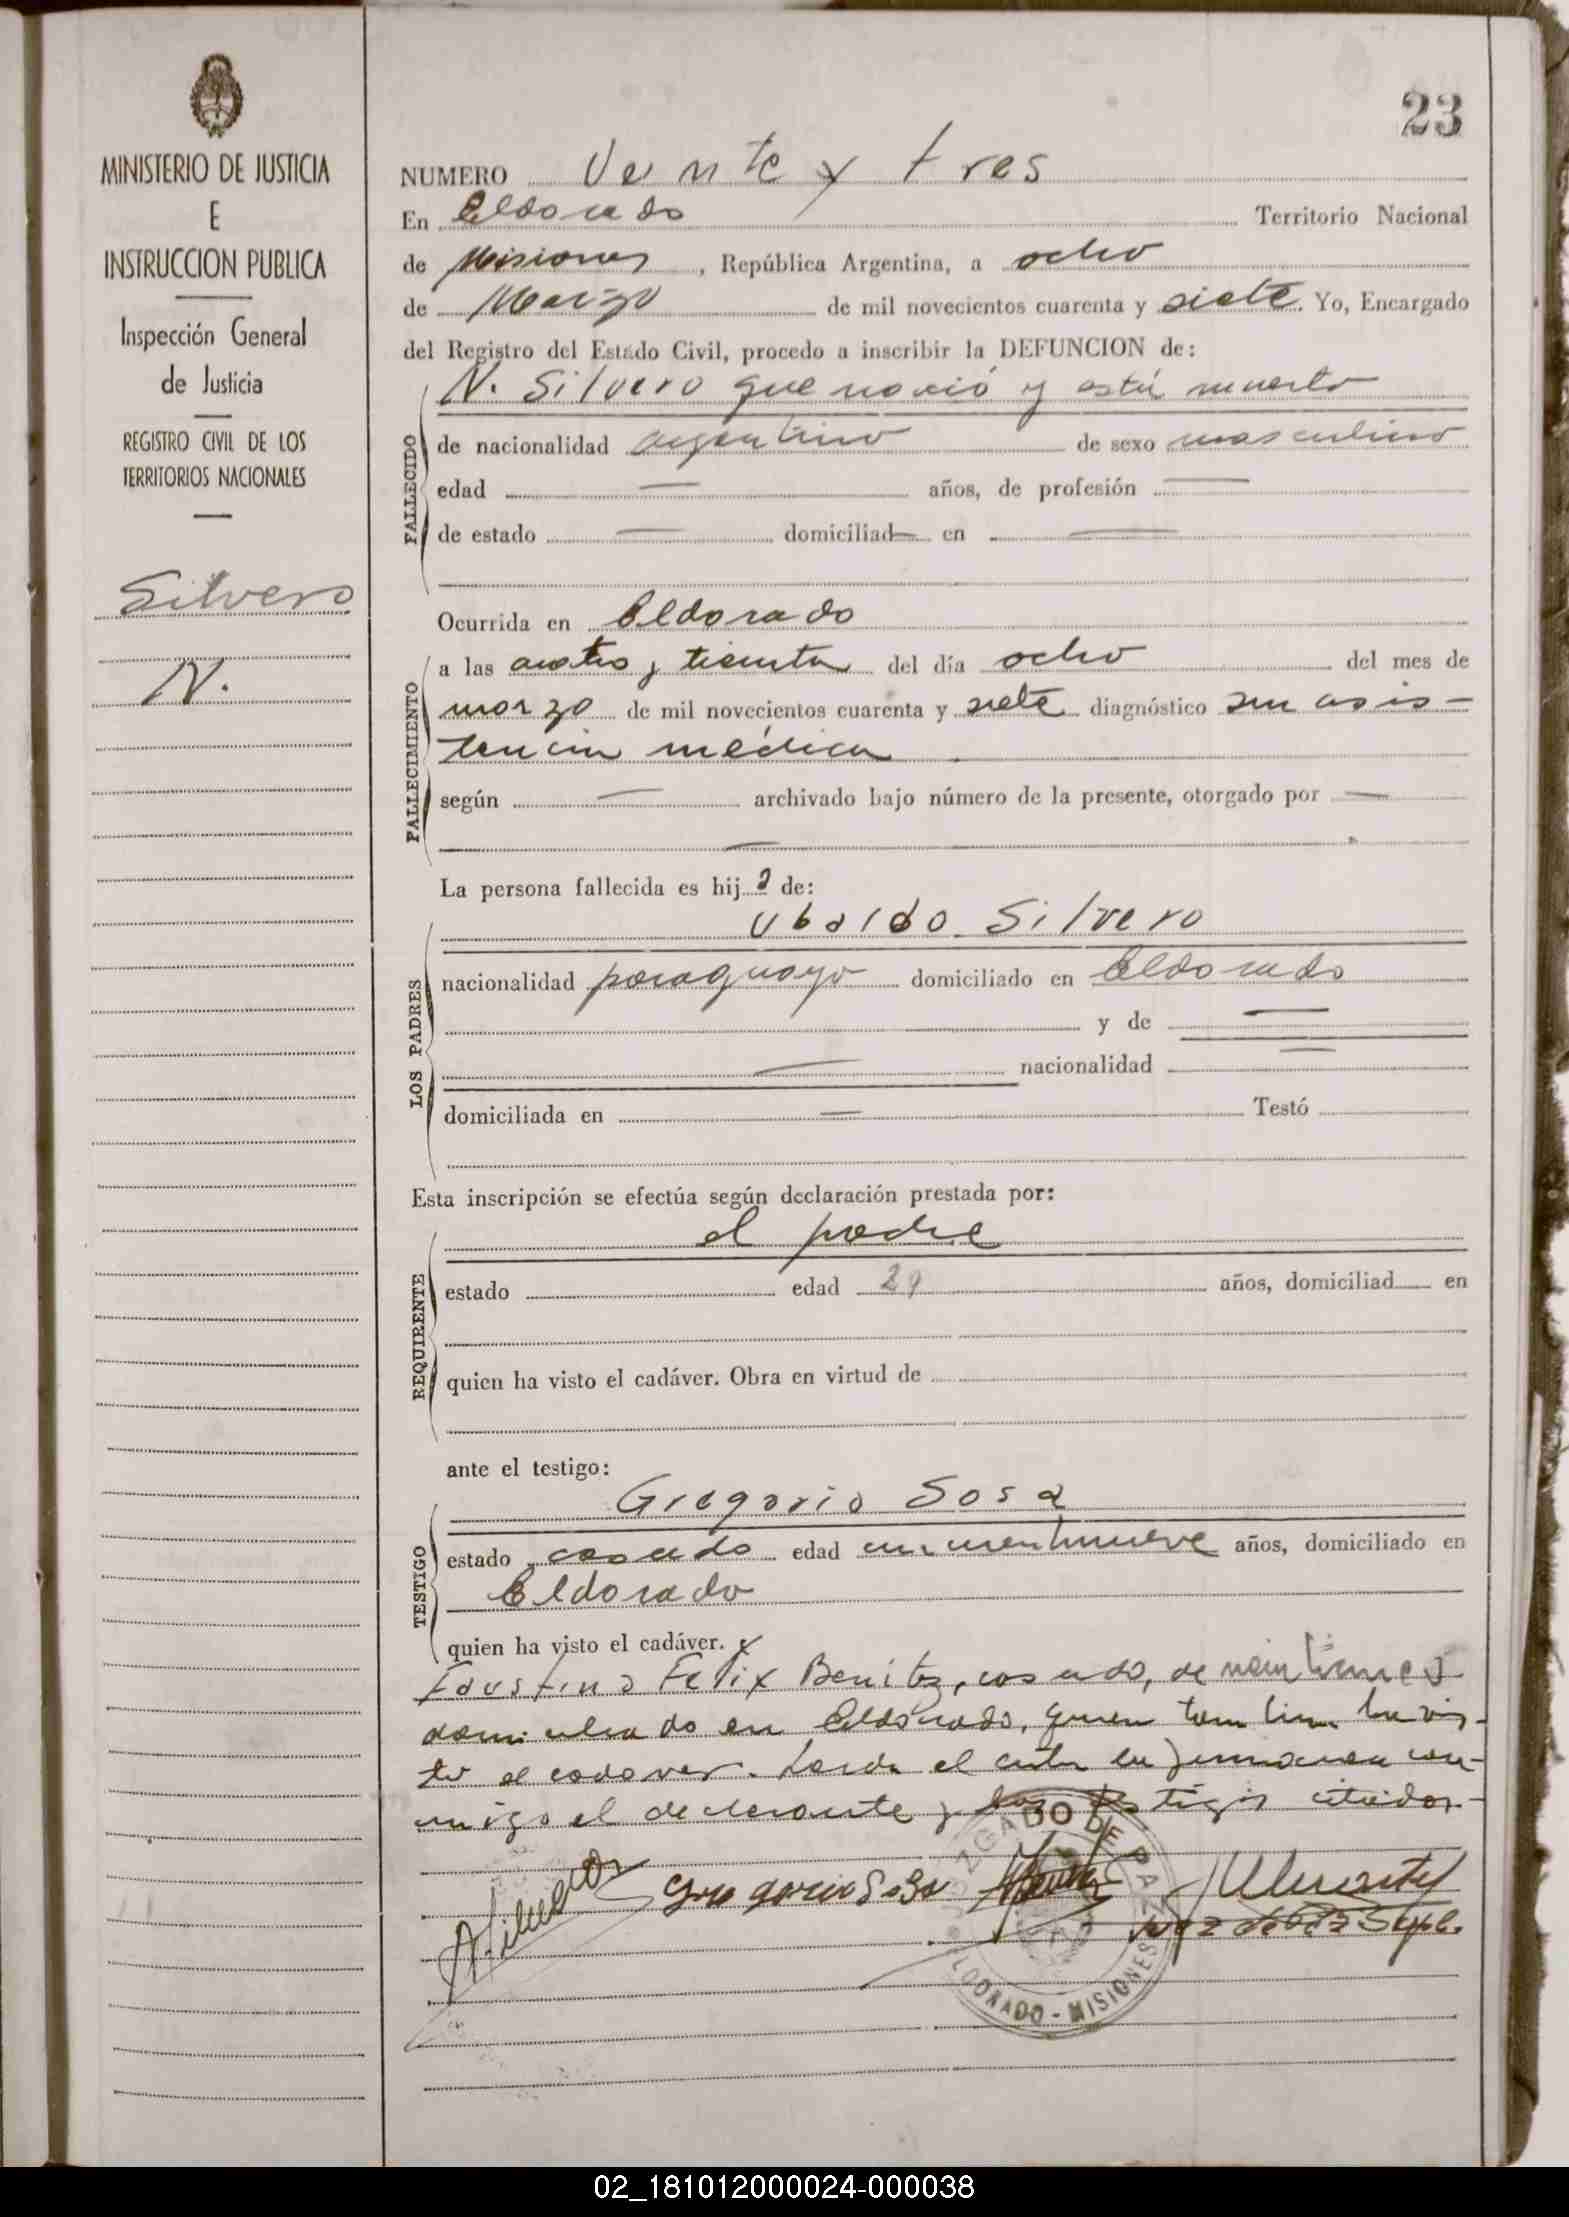 23
MINISTERIO DE JUSTICIA
E
INSTRUCCION PUBLICA
Inspección General
de Justicia
REGISTRO CIVIL DE LOS
TERRITORIOS NACIONALES
Silvero
N.
NUMERO Veinte y tres
En Eldorado Territorio Nacional
de Misiones, República Argentina, a ocho
de Marzo de mil novecientos cuarenta y siete. Yo, Encargado
del Registro del Estado Civil, procedo a inscribir la DEFUNCION de:
N. Silvero que nació y está muerto
FALLECIDO
de nacionalidad argentino de sexo masculino
edad — años, de profesión —
de estado — domiciliad— en —
Ocurrida en Eldorado
FALLECIMIENTO
a las cuatro y treinta del día ocho del mes de
marzo de mil novecientos cuarenta y siete diagnóstico sin asis-
tencia médica
según — archivado bajo número de la presente, otorgado por —
—
La persona fallecida es hijo de:
LOS PADRES
Ubaldo Silvero
nacionalidad paraguayo domiciliado en Eldorado
y de —
— nacionalidad —
domiciliada en — Testó
Esta inscripción se efectúa según declaración prestada por:
REQUIRENTE
el padre
estado edad 29 años, domiciliad en
quien ha visto el cadáver. Obra en virtud de
ante el testigo:
TESTIGO
Gregorio Sosa
estado casado edad cincuentinueve años, domiciliado en
Eldorado
quien ha visto el cadáver. y
Faustino Felix Benitez, casado, de
domiciliado en Eldorado, quien tambien ha vis-
to el cadaver. Leida el acta la firmaron con-
migo el declarante y los testigos citados.-
Gregorio Sosa
Juez de Paz Supl.
JUZGADO DE PAZ
ELDORADO - MISIONES
02_181012000024-000038